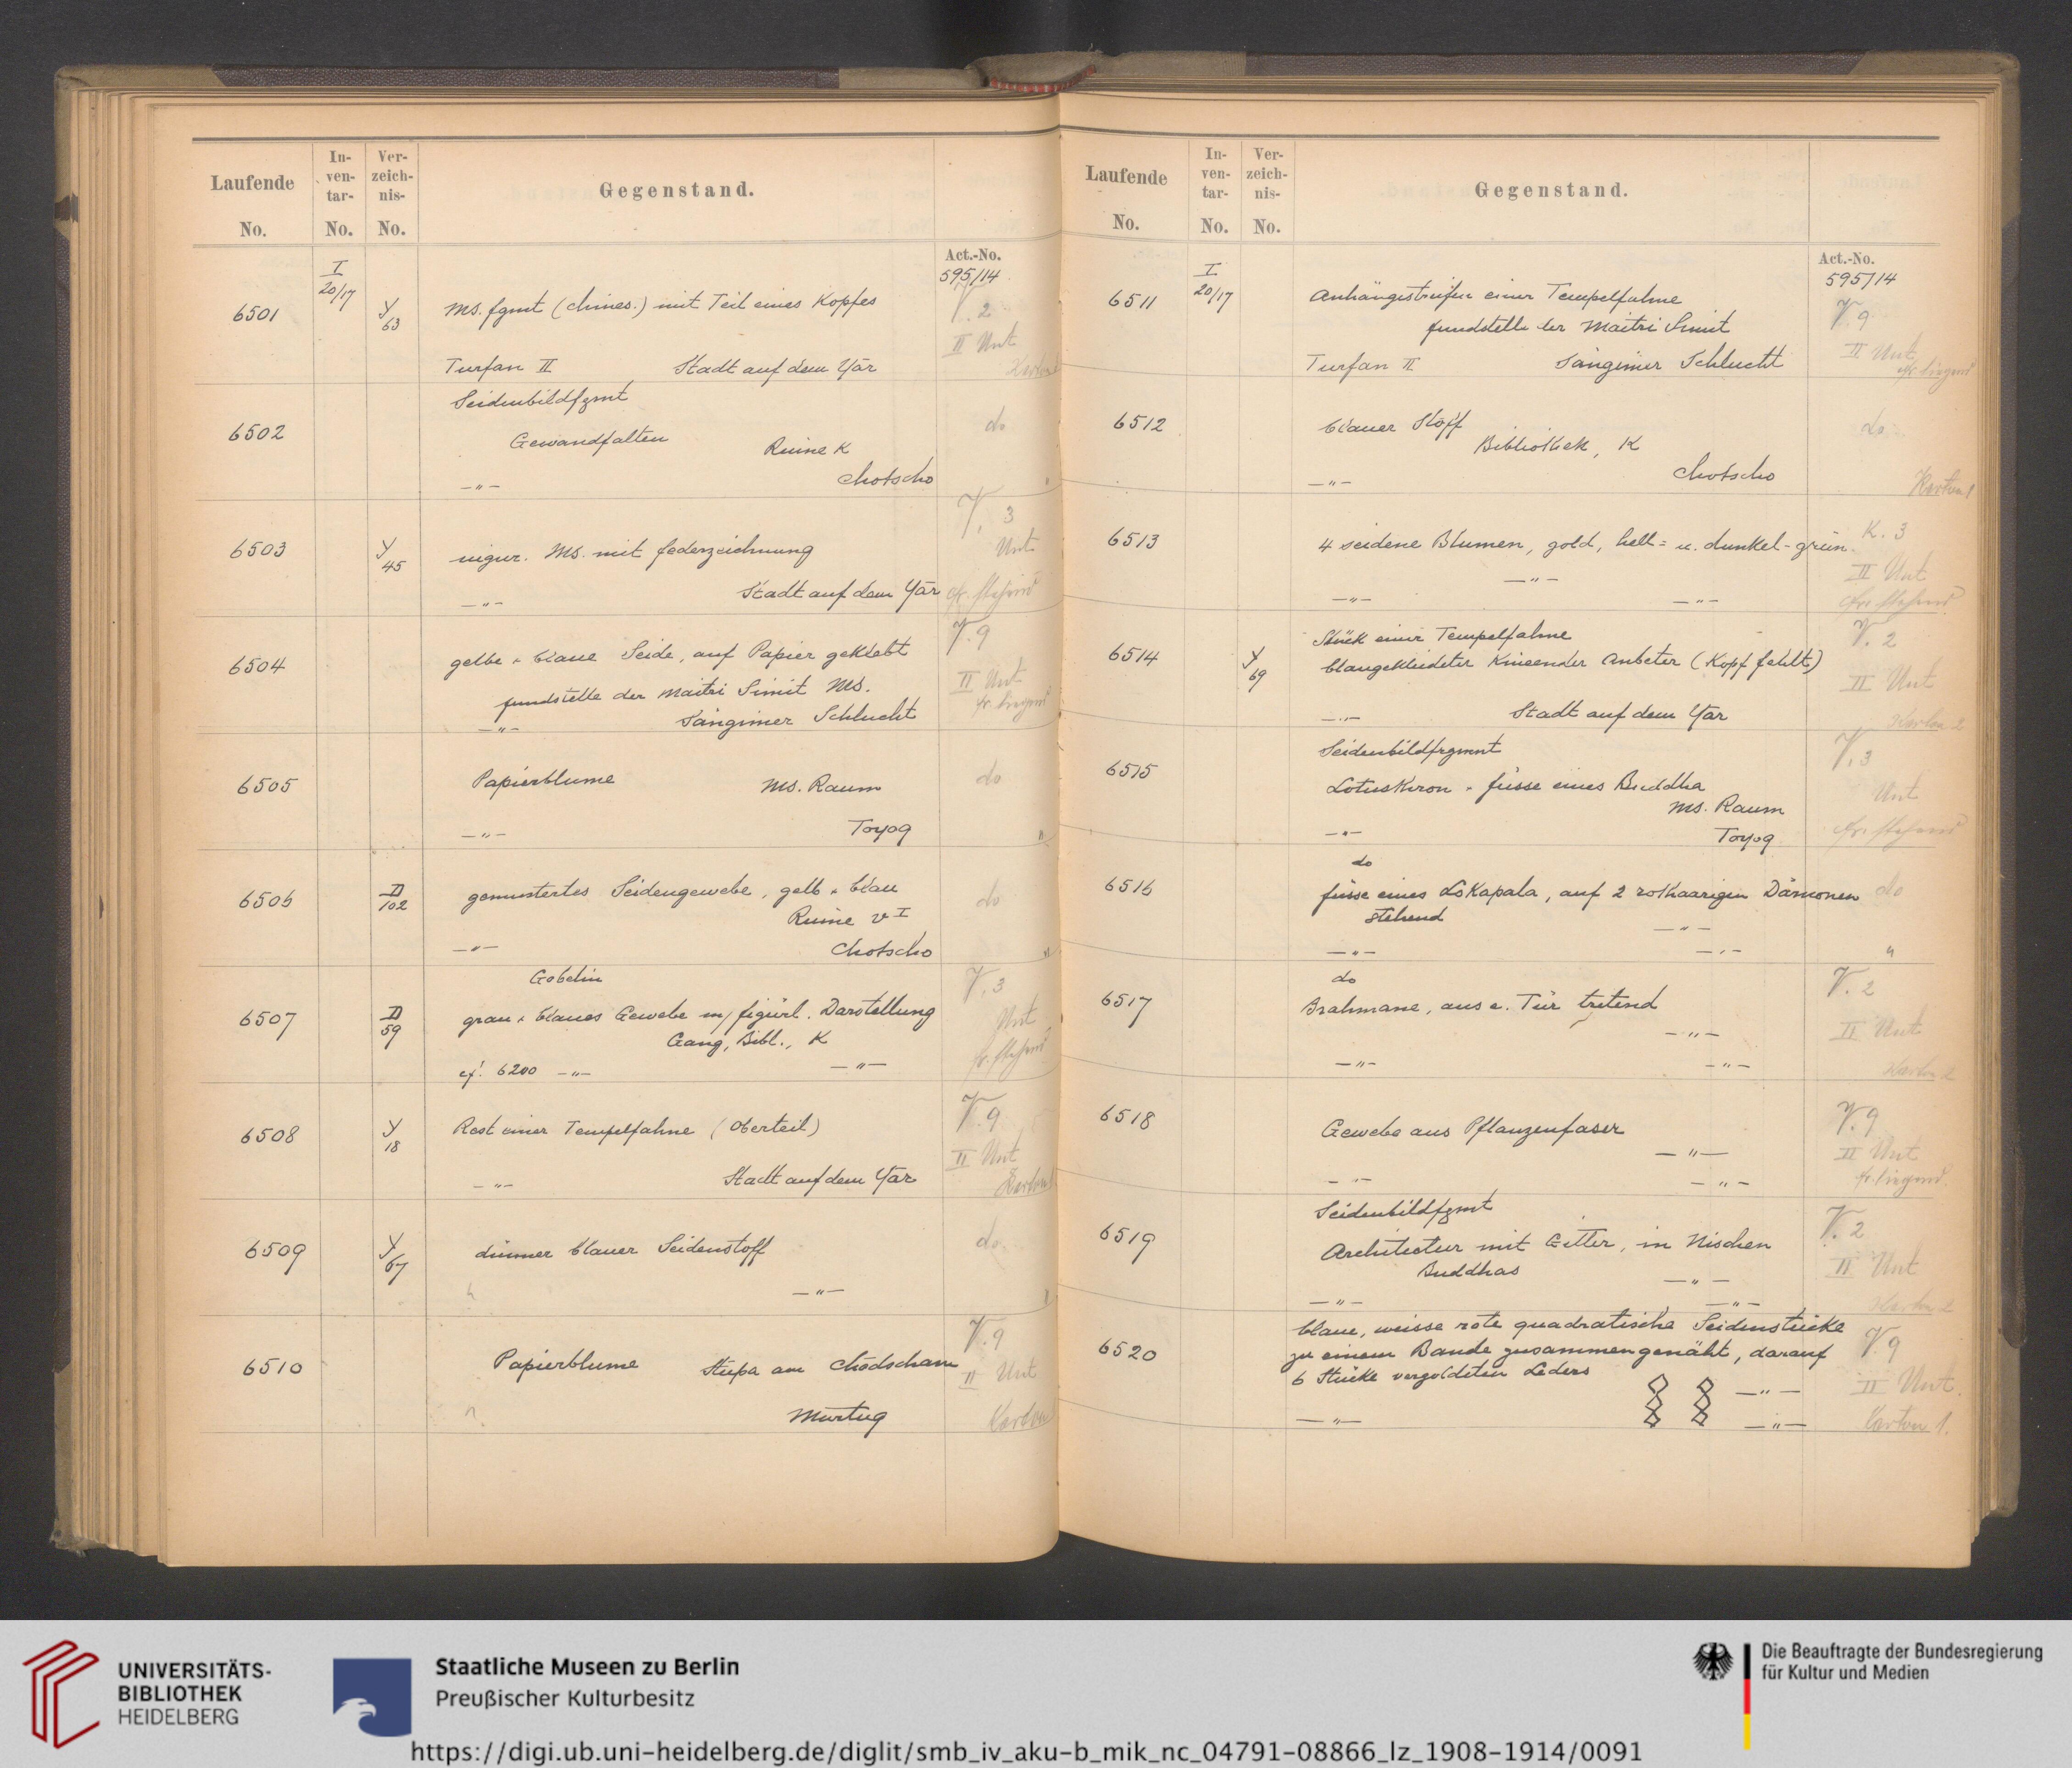 Laufende No.
In-ven-tar-No.
Ver-zeich-nis-No.
Gegenstand.
Act.-No.
595/14
I 20/17
6501
Y 63
Ms. fgmt (chines.) mit Teil eines Kopfes
V. 2
II Unt
Turfan II Stadt auf dem Yar
Karton
6502
Seidenbildfgmt
Gewandfalten
Ruine K
do
—"— Chotscho
6503
Y 45
uigur. Ms. mit Federzeichnung
V. 3
Unt
—"— Stadt auf dem Yar
gr. stehend
6504
gelbe + blaue Seide, auf Papier geklebt
V. 9
Fundstelle der Maitri Simit Ms.
II Unt
gr. liegend
—"— Sängimer Schlucht
6505
Papierblume Ms. Raum
do
—"— Toyog "
6506
D 102
gemustertes Seidengewebe, gelb + blau
do
Ruine V I
—"— Chotscho "
6507
D 59
Gobelin
V. 3
grau + blaues Gewebe m/ figürl. Darstellung
Unt
Gang, Bibl., K
gr. stehend
cf. 6200 —"— —"—
6508
Y 18
Rest einer Tempelfahne (Oberteil)
V. 9
II Unt
—"— Stadt auf dem Yar
Karton
6509
Y 67
dünner blauer Seidenstoff
do.
—"—
6510
Papierblume Stupa am Chodscham
V. 9
II Unt
Murtug
Karton
Laufende No.
In-ven-tar-No.
Ver-zeich-nis-No.
Gegenstand.
Act.-No.
595/14
I 20/17
6511
Anhängestreifen einer Tempelfahne
V. 9
Fundstelle der Maitri Simit
II Unt
Turfan II Sängimer Schlucht
gr. liegend
6512
blauer Stoff
do
Bibliothek, K
—"— Chotscho
Karton 1
6513
4 seidene Blumen, gold, hell= u. dunkel-grün.
K. 3
—"—
II Unt
—"— —"—
gr. stehend
6514
Y 69
Stück einer Tempelfahne
V. 2
blaugekleideter knieender Anbeter (Kopf fehlt)
II Unt
—"— Stadt auf dem Yar
Karton 2
6515
Seidenbildfrgmnt
V. 3
Lotuskron + Füsse eines Buddha
Unt
Ms. Raum
—"— Toyog
gr. stehend
6516
do
Füsse eines Lokapala, auf 2 rothaarigen Dämonen
do
stehend —"—
—"— —"— "
6517
do
V. 2
Brahmane, aus e. Tür tretend
—"—
II Unt
—"— —"—
Karton 2
6518
Gewebe aus Pflanzenfaser
V. 9
—"—
II Unt
—"— —"—
gr. liegend.
6519
Seidenbildfgmt
V. 2
Architectur mit Gitter, in Nischen
II Unt
Buddhas —"—
—"— —"—
Karton 2
6520
blaue, weisse rote quadratische Seidenstücke
V. 9
zu einem Bande zusammengenäht, darauf
6 Stücke vergoldeten Leders —"—
II Unt.
—"— —"—
Karton 1.
UNIVERSITÄTS-
BIBLIOTHEK
HEIDELBERG
Staatliche Museen zu Berlin
Preußischer Kulturbesitz
Die Beauftragte der Bundesregierung
für Kultur und Medien
https://digi.ub.uni-heidelberg.de/diglit/smb_iv_aku-b_mik_nc_04791-08866_lz_1908-1914/0091